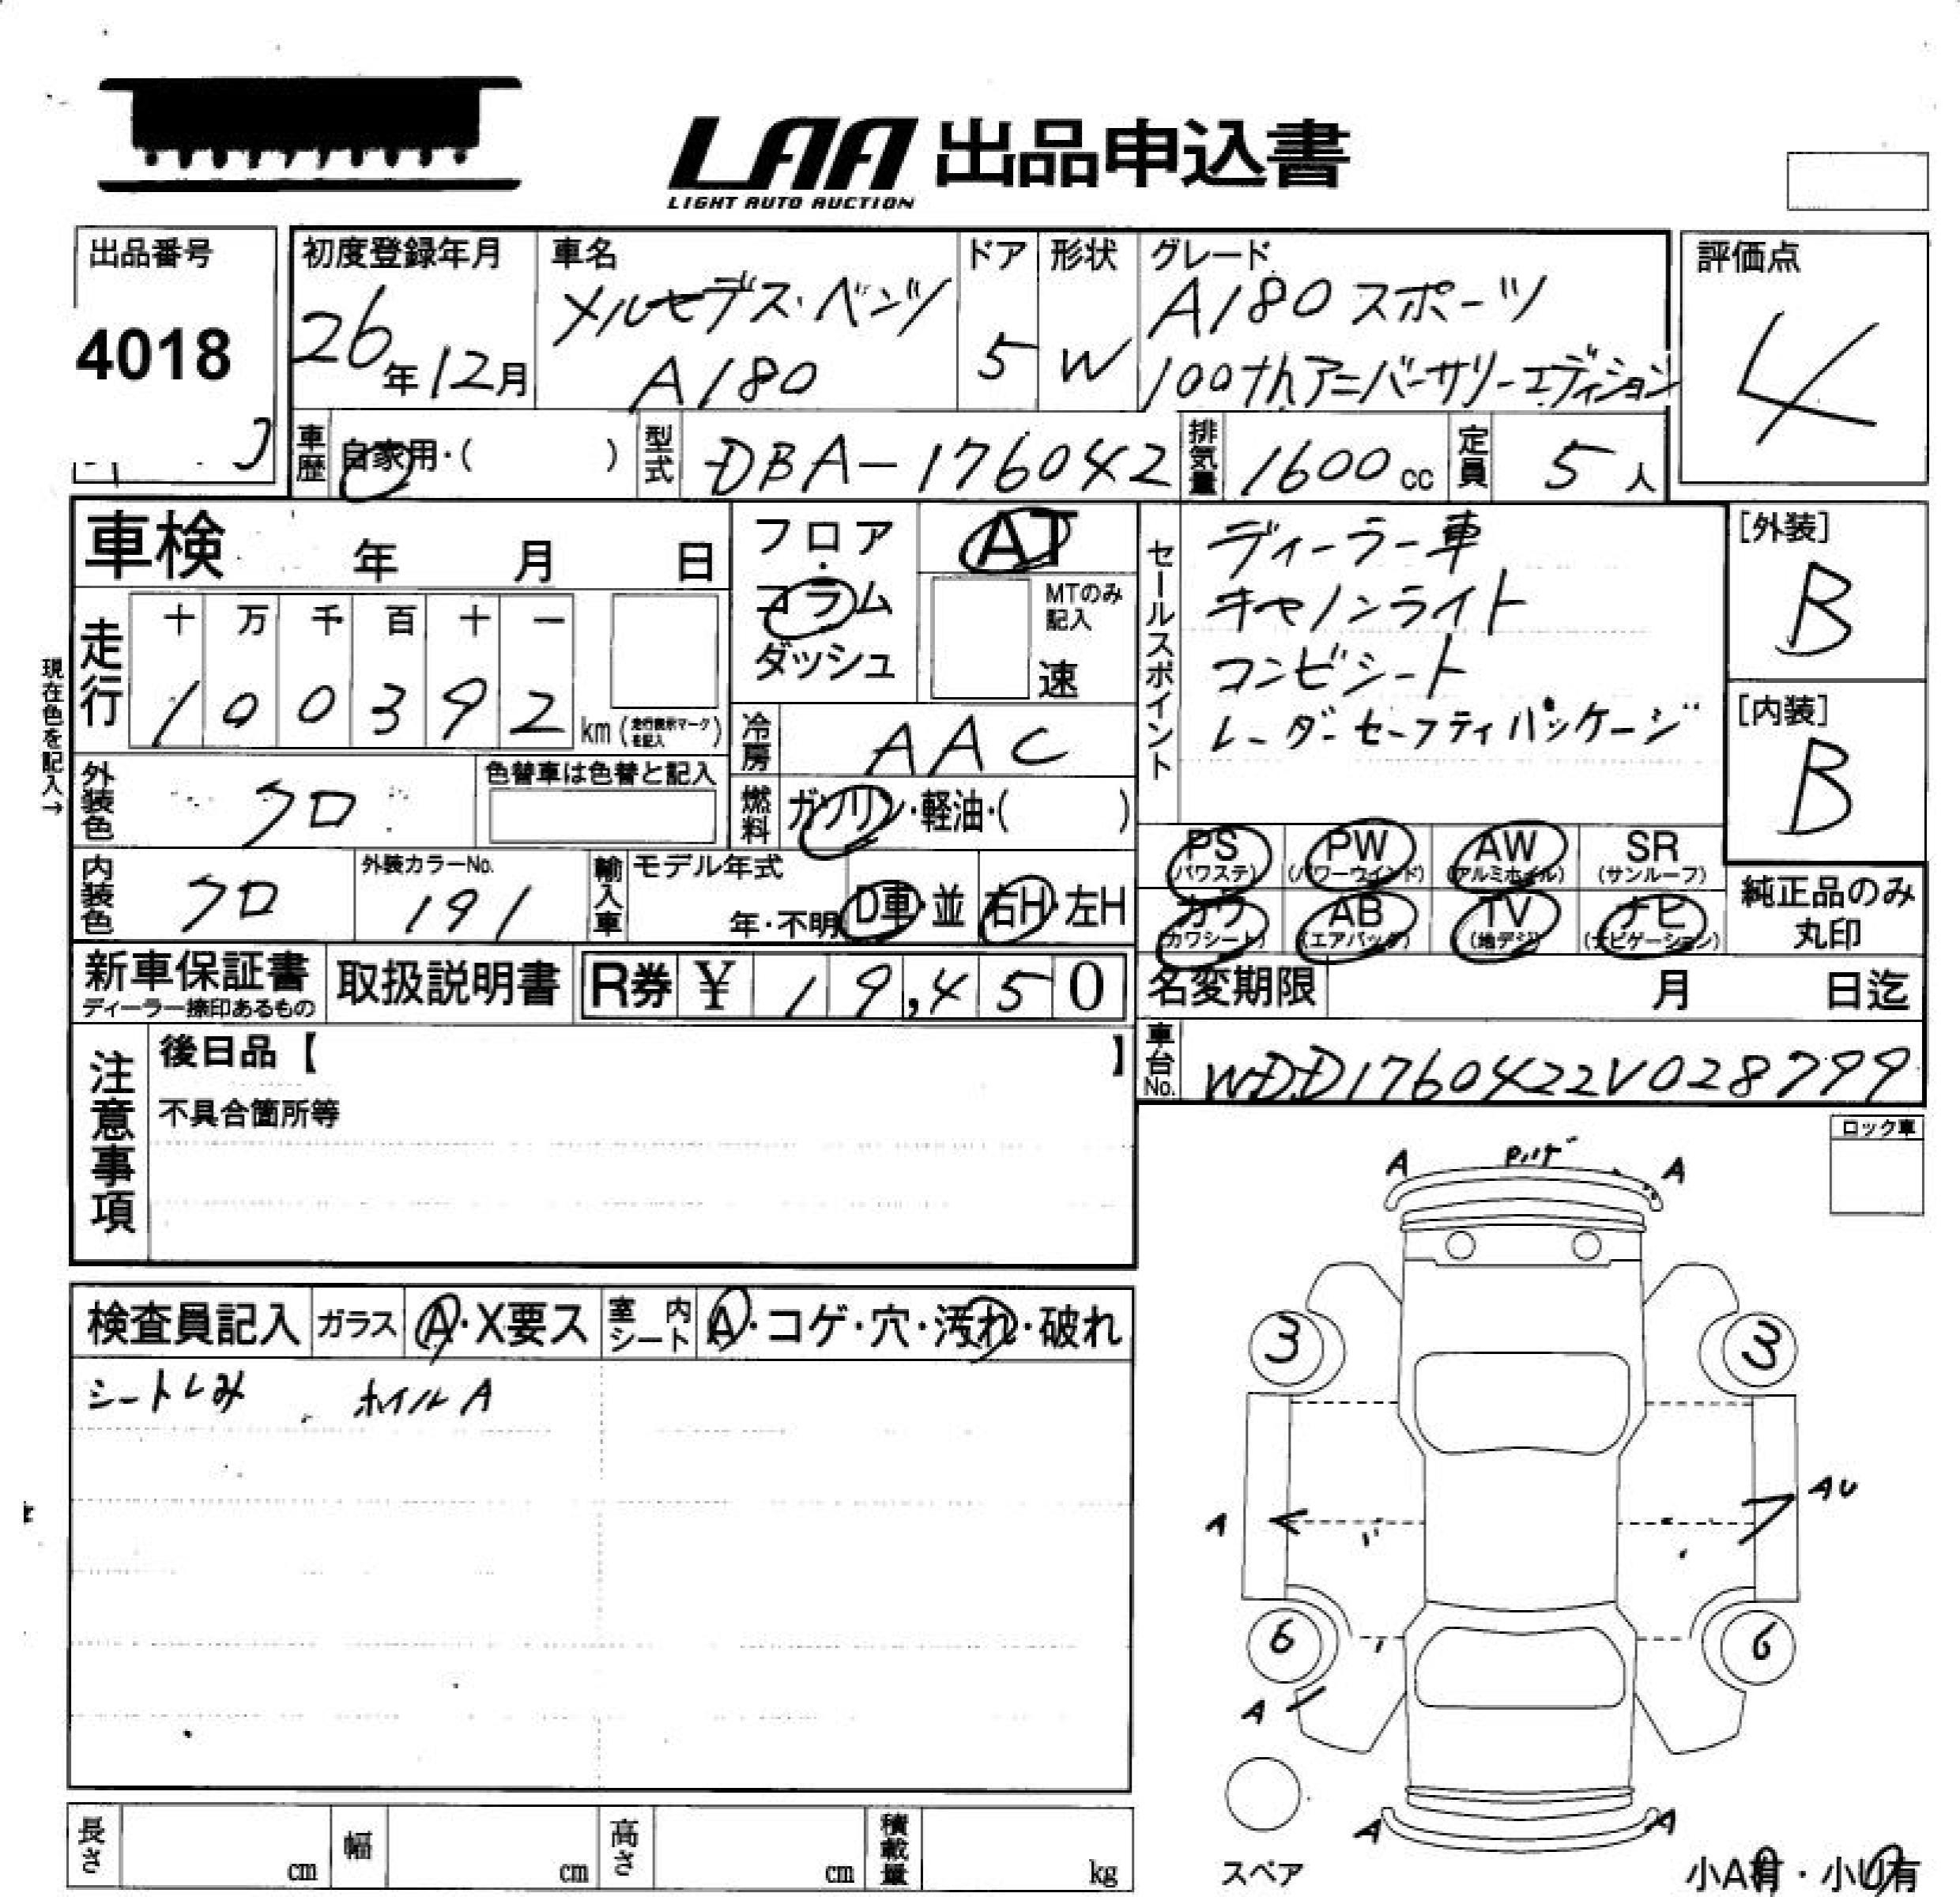 LAA 出品申込書
LIGHT AUTO AUCTION
出品番号
4018
初度登録年月
26年12月
車名
メルセデス・ベンツ
A180
ドア
5
形状
W
グレード
A180 スポーツ
100thアニバーサリーエディション
評価点
4
車歴 自家用・( )
型式 DBA-176042
排気量 1600cc
定員 5人
車検 年 月 日
走行
十 万 千 百 十 一
1 0 0 3 9 2 km (走行表示マークを記入)
現在色を記入→
外装色 クロ
色替車は色替と記入
内装色 クロ
外装カラーNo.
191
フロア・コラム
ダッシュ
AT
MTのみ記入
速
冷房 AAC
燃料 ガソリン・軽油・( )
輸入車 モデル年式
年・不明 D車・並 右H・左H
セールスポイント
ディーラー車
キセノンライト
コンビシート
レーダーセーフティパッケージ
[外装]
B
[内装]
B
PS (パワステ)
PW (パワーウインド)
AW (アルミホイル)
SR (サンルーフ)
カワ (カワシート)
AB (エアバック)
TV (地デジ)
ナビ (ナビゲーション)
純正品のみ
丸印
新車保証書
ディーラー捺印あるもの
取扱説明書
R券 ¥ 19,450
名変期限 月 日迄
車台No. WDD1760422V028799
注意事項
後日品【 】
不具合箇所等
ロック車
検査員記入 ガラス A・X要ス 室内シート A・コゲ・穴・汚れ・破れ
シートしみ ホイルA
A A
3 3
A AU
6 6
A
A A
スペア
長さ cm 幅 cm 高さ cm 積載量 kg
小A有・小U有